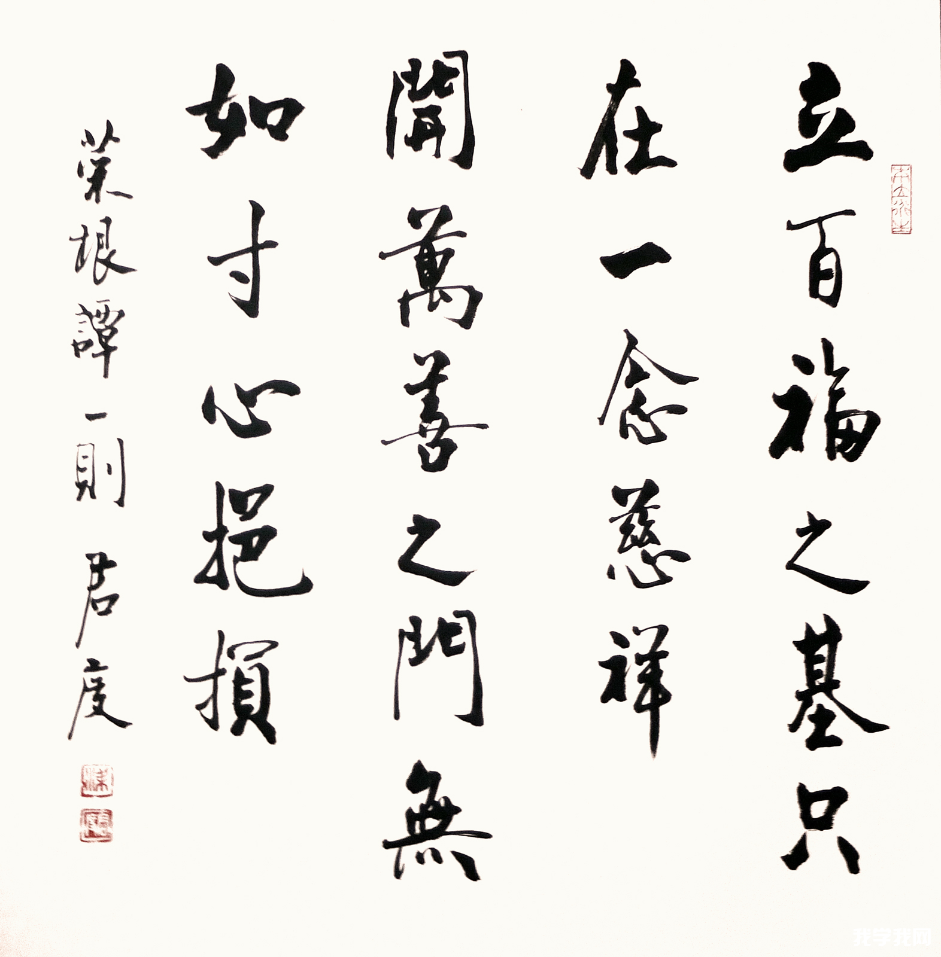 立百福之基只
在一念慈祥
開萬善之門無
如寸心挹損
菜根譚一則 君度